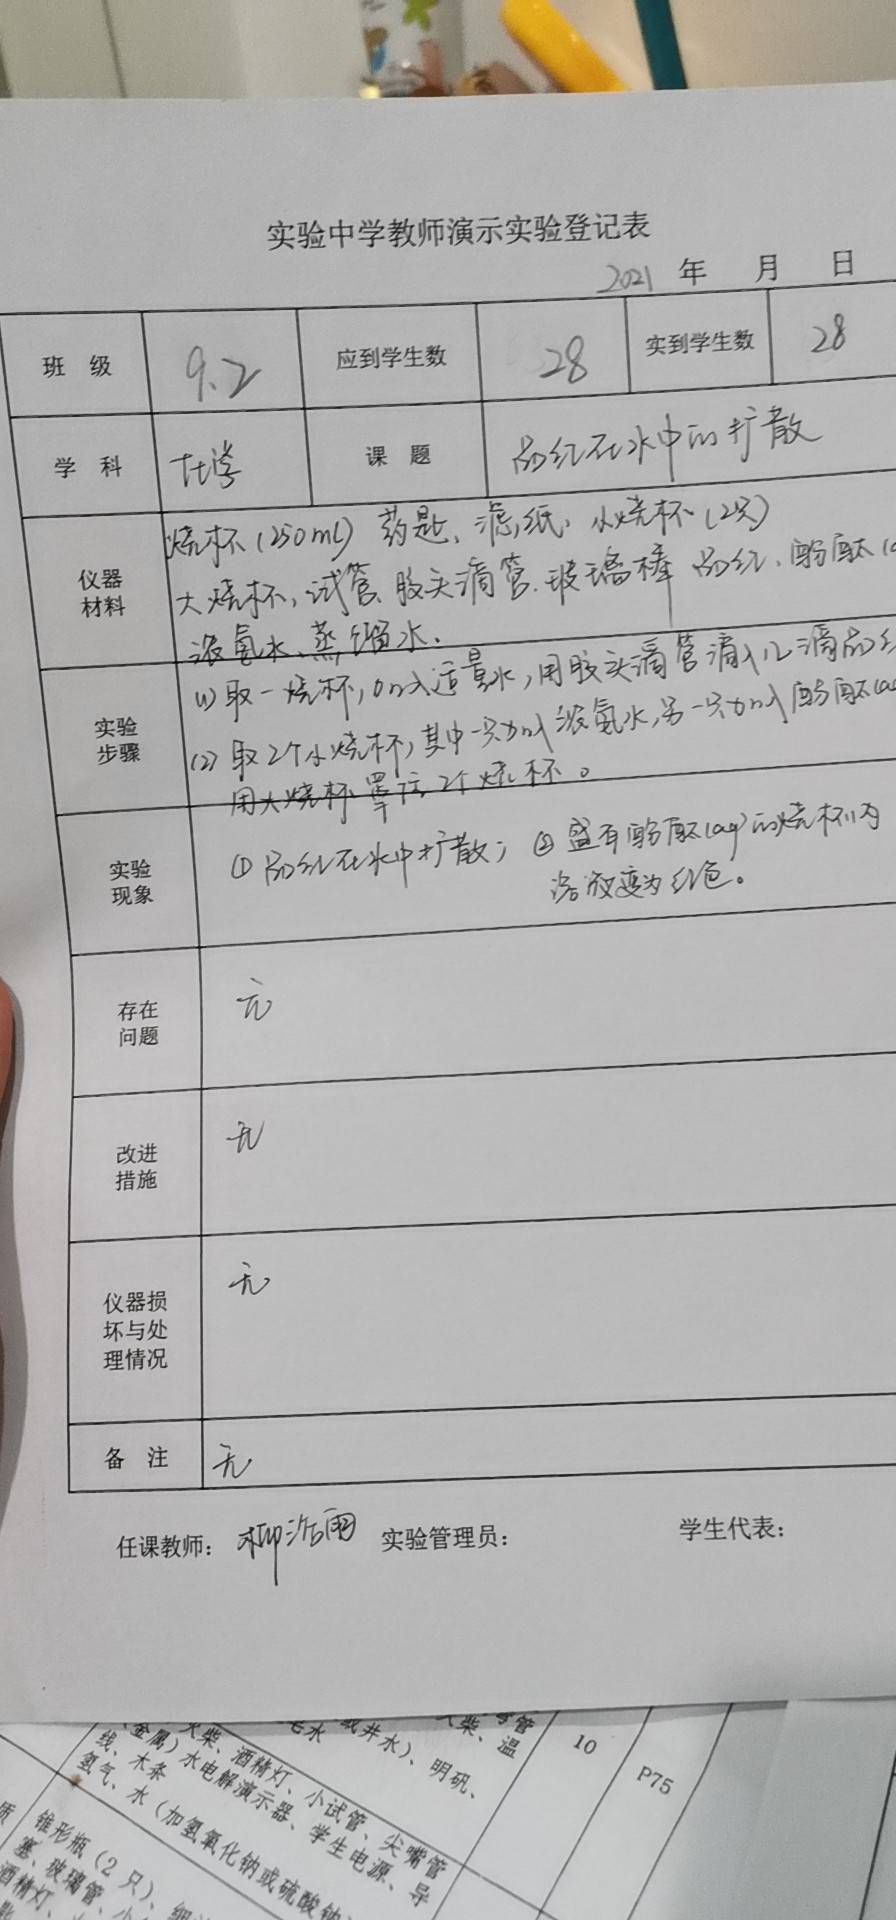 实验中学教师演示实验登记表
2021 年 月 日
班 级 9.2 应到学生数 28 实到学生数 28
学 科 化学 课 题 品红在水中的扩散
仪器材料
烧杯(250mL) 药匙、滤纸、小烧杯(2只)
大烧杯、试管、胶头滴管、玻璃棒 品红、酚酞
浓氨水、蒸馏水.
实验步骤
(1) 取一烧杯,加入适量水,用胶头滴管滴入几滴品红
(2) 取2个小烧杯,其中一只加入浓氨水,另一只加入酚酞(aq
用大烧杯罩住2个烧杯。
实验现象
① 品红在水中扩散; ② 盛有酚酞(aq)的烧杯内
溶液变为红色。
存在问题
无
改进措施
无
仪器损坏与处理情况
无
备 注 无
任课教师: 实验管理员: 学生代表:
或井水)、明矾、
火柴、温
火柴、酒精灯、小试管、尖嘴管
金属)水电解演示器、学生电源、导
线、木条
氢气、水(加氢氧化钠或硫酸钠
10
P75
锥形瓶(2 只)、
塞、玻璃管、小
酒精灯、